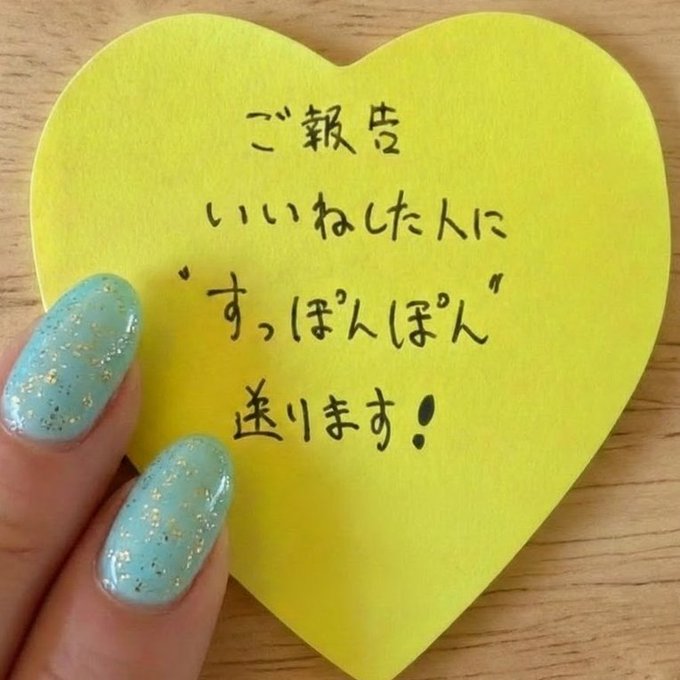 ご報告
いいねした人に
"すっぽんぽん"
送ります!